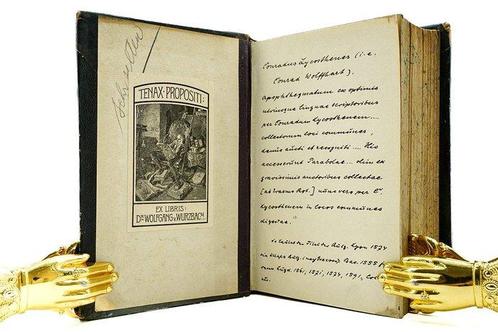 TENAX·PROPOSITI:
EX LIBRIS:
Dr WOLFGANG v. WURZBACH
Conradus Lycosthenes (i.e.
Conrad Wolffhart).
Apophthegmatum ex optimis
utriusque linguae scriptoribus
per Conradum Lycosthenem ...
collectorum loci communes,
denuo aucti et recogniti ... His
accesserunt Parabolae ... dein ex
gravissimis auctoribus collectae
[ab Erasmo Rot.] nunc vero per C.
Lycosthenem in locos communes
digestae.
Lyon 1574
1555
1841, 1871, 1874, 1891,